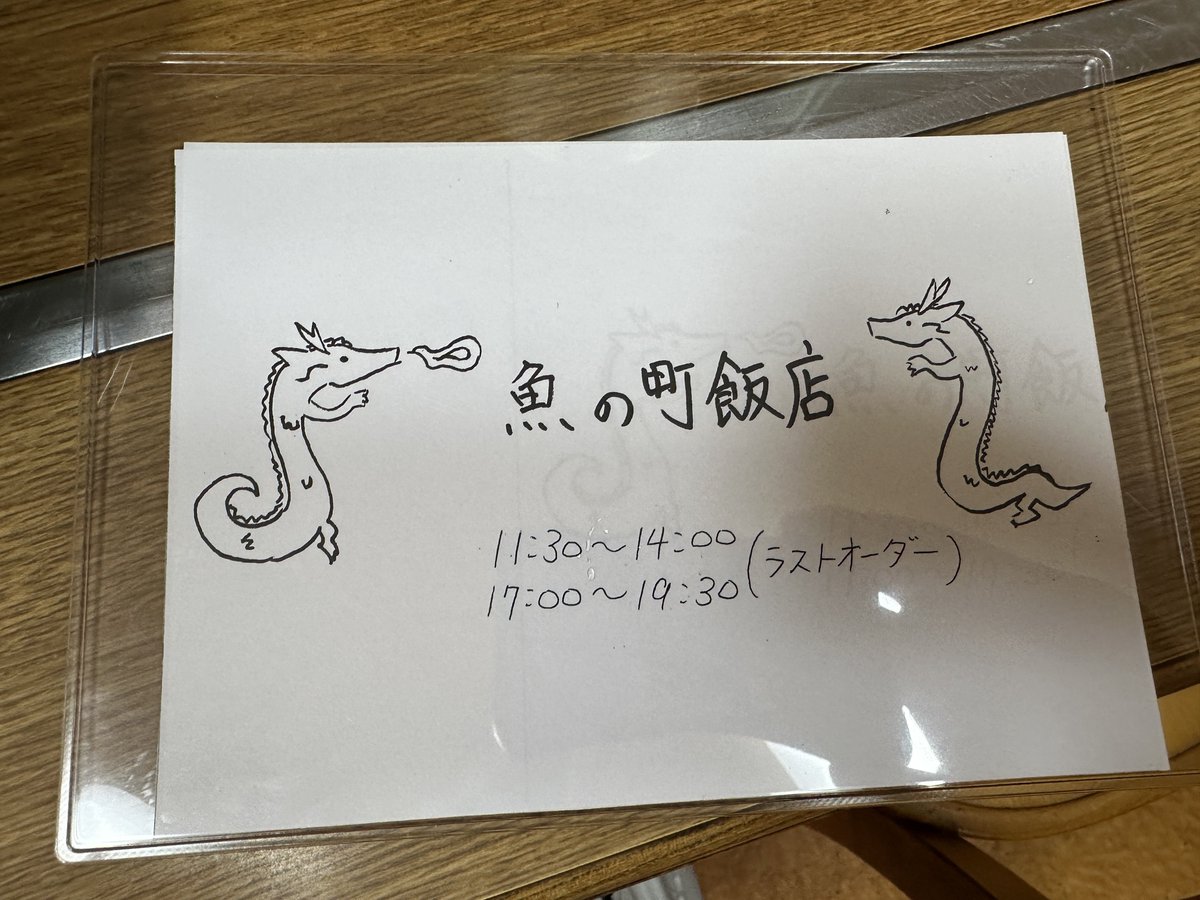 魚の町飯店
11:30〜14:00
17:00〜19:30
(ラストオーダー)